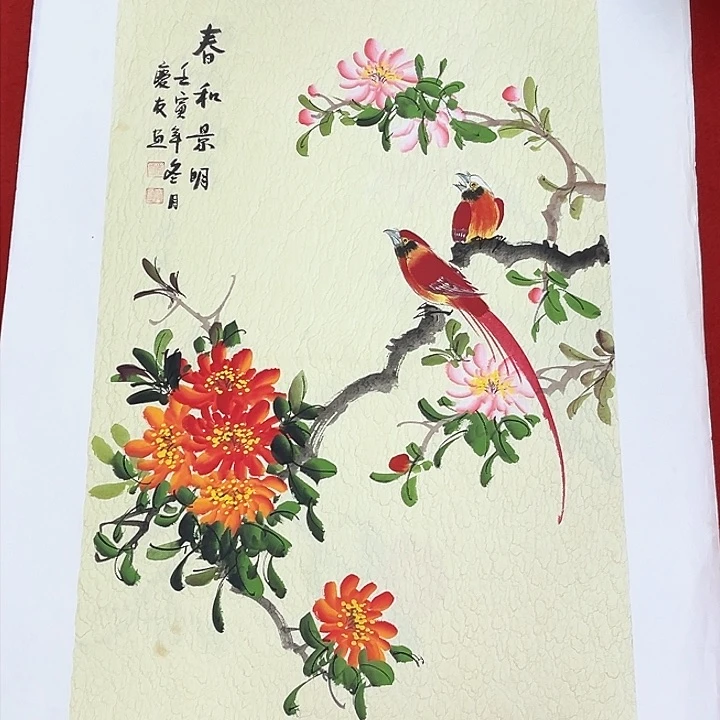 春和景明
壬寅年冬月
慶友画